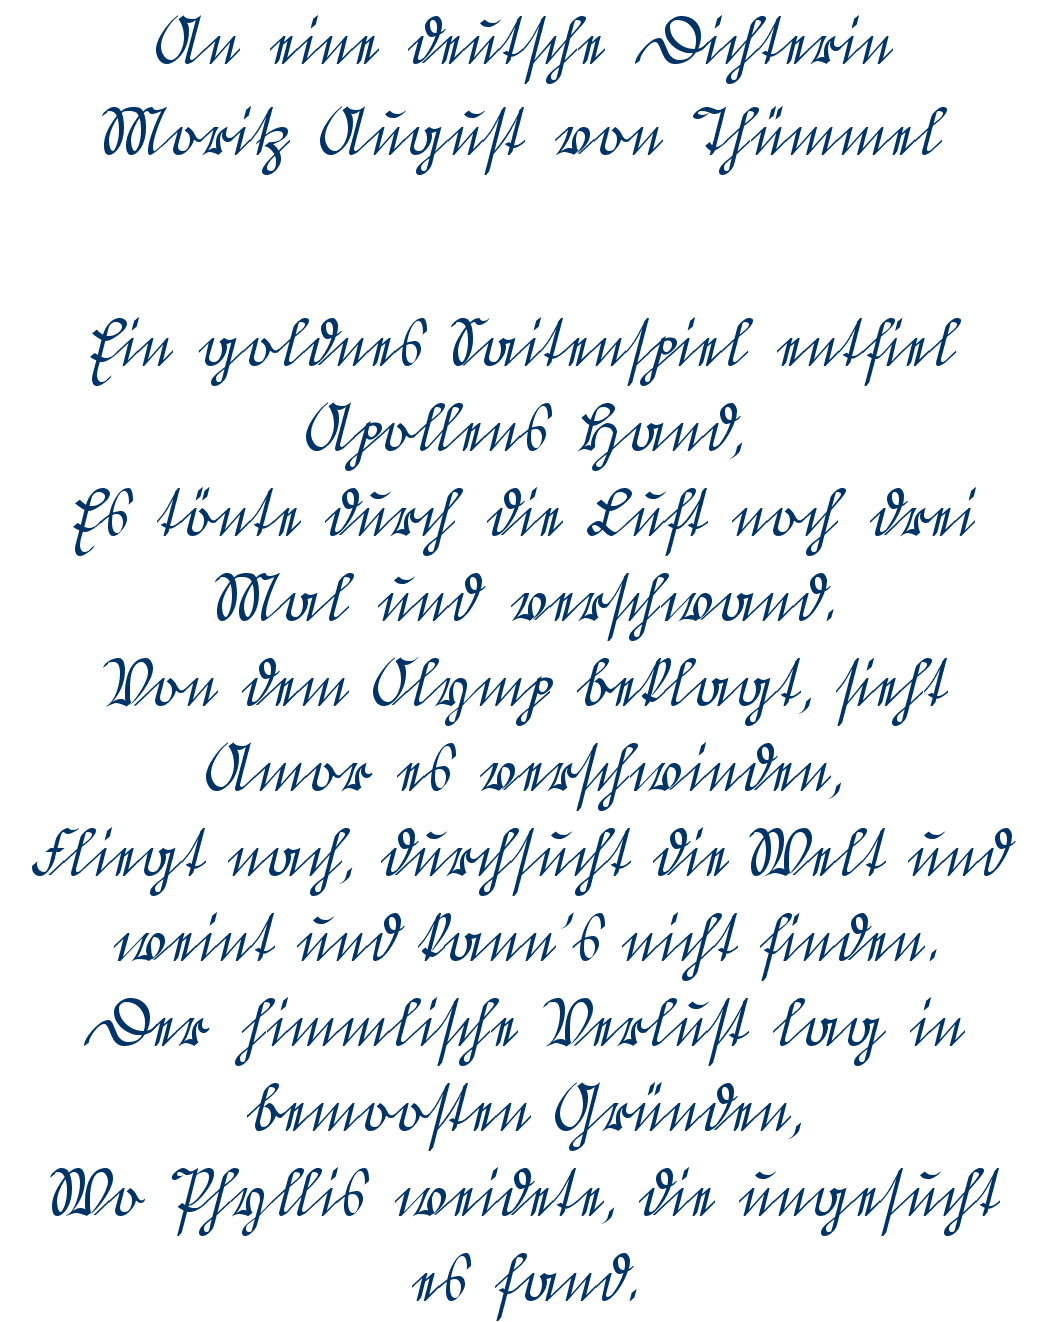 An eine deutsche Dichterin
Moritz August von Thümmel
Ein goldnes Saitenspiel entfiel
Apollens Hand,
Es tönte durch die Luft noch drei
Mal und verschwand.
Von dem Olymp beklagt, sieht
Amor es verschwinden,
Fliegt nach, durchsucht die Welt und
weint und kann's nicht finden.
Der himmlische Verlust lag in
bemoosten Gründen,
Wo Phyllis weidete, die ungesucht
es fand.